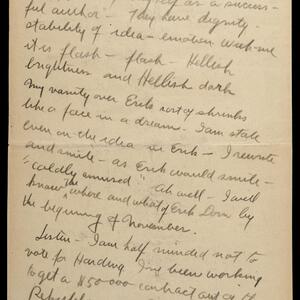 as a success-
ful author — They have dignity.
stability of idea — emotion with me
it is flash — flash — Hellish
brightness and Hellish dark
My vanity over Erik sort of shrinks
like a face in a dream. I am stale
even on the idea in Erik — I rewrite
and smile — as Erik would smile —
"coldly amused". Ah well — I will
know the where and what of Erik Dorn by
the beginning of November.
Listen — I am half minded not to
vote for Harding. I've been working
to get a $50-000 contract out of the